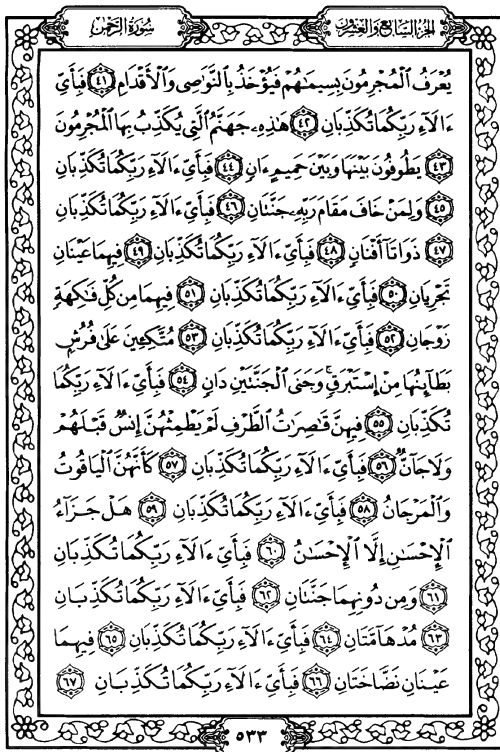 الجزء السابع والعشرون
سورة الرحمن
يُعْرَفُ الْمُجْرِمُونَ بِسِيمَاهُمْ فَيُؤْخَذُ بِالنَّوَاصِي وَالْأَقْدَامِ ٤١ فَبِأَيِّ
ءَالَاءِ رَبِّكُمَا تُكَذِّبَانِ ٤٢ هَٰذِهِ جَهَنَّمُ الَّتِي يُكَذِّبُ بِهَا الْمُجْرِمُونَ
٤٣ يَطُوفُونَ بَيْنَهَا وَبَيْنَ حَمِيمٍ ءَانٍ ٤٤ فَبِأَيِّ ءَالَاءِ رَبِّكُمَا تُكَذِّبَانِ
٤٥ وَلِمَنْ خَافَ مَقَامَ رَبِّهِ جَنَّتَانِ ٤٦ فَبِأَيِّ ءَالَاءِ رَبِّكُمَا تُكَذِّبَانِ
٤٧ ذَوَاتَا أَفْنَانٍ ٤٨ فَبِأَيِّ ءَالَاءِ رَبِّكُمَا تُكَذِّبَانِ ٤٩ فِيهِمَا عَيْنَانِ
تَجْرِيَانِ ٥٠ فَبِأَيِّ ءَالَاءِ رَبِّكُمَا تُكَذِّبَانِ ٥١ فِيهِمَا مِن كُلِّ فَٰكِهَةٍ
زَوْجَانِ ٥٢ فَبِأَيِّ ءَالَاءِ رَبِّكُمَا تُكَذِّبَانِ ٥٣ مُتَّكِـِٔينَ عَلَىٰ فُرُشٍ
بَطَآئِنُهَا مِنْ إِسْتَبْرَقٍ ۚ وَجَنَى الْجَنَّتَيْنِ دَانٍ ٥٤ فَبِأَيِّ ءَالَاءِ رَبِّكُمَا
تُكَذِّبَانِ ٥٥ فِيهِنَّ قَٰصِرَٰتُ الطَّرْفِ لَمْ يَطْمِثْهُنَّ إِنسٌ قَبْلَهُمْ
وَلَا جَآنٌّ ٥٦ فَبِأَيِّ ءَالَاءِ رَبِّكُمَا تُكَذِّبَانِ ٥٧ كَأَنَّهُنَّ الْيَاقُوتُ
وَالْمَرْجَانُ ٥٨ فَبِأَيِّ ءَالَاءِ رَبِّكُمَا تُكَذِّبَانِ ٥٩ هَلْ جَزَآءُ
الْإِحْسَٰنِ إِلَّا الْإِحْسَٰنُ ٦٠ فَبِأَيِّ ءَالَاءِ رَبِّكُمَا تُكَذِّبَانِ
٦١ وَمِن دُونِهِمَا جَنَّتَانِ ٦٢ فَبِأَيِّ ءَالَاءِ رَبِّكُمَا تُكَذِّبَانِ
٦٣ مُدْهَآمَّتَانِ ٦٤ فَبِأَيِّ ءَالَاءِ رَبِّكُمَا تُكَذِّبَانِ ٦٥ فِيهِمَا
عَيْنَانِ نَضَّاخَتَانِ ٦٦ فَبِأَيِّ ءَالَاءِ رَبِّكُمَا تُكَذِّبَانِ ٦٧
٥٣٣